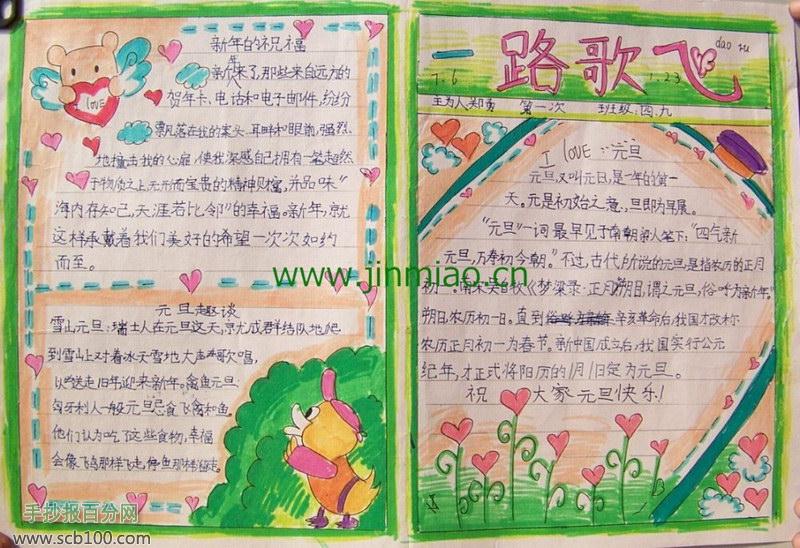 新年的祝福
新年来了,那些来自远方的
贺年卡、电话和电子邮件,纷纷
飘落在我的案头、耳畔和眼前,强烈
地撞击我的心扉,使我深感自己拥有一笔超然
于物质之上,无形而宝贵的精神财富,并品味"
海内存知己,天涯若比邻"的幸福。新年,就
这样承载着我们美好的希望一次次如约
而至。
元旦趣谈
雪山元旦:瑞士人在元旦这天,就成群结队地爬
到雪山上对着冰天雪地大声歌唱,
以送走旧年迎来新年。禽鱼元旦:
匈牙利人一般元旦忌食飞禽和鱼。
他们认为吃了这些食物,幸福
会像飞鸟那样飞走,像鱼那样溜走。
手抄报百分网
www.scb100.com
一路歌飞
dao su
7.6
1.23
主办人郑
第一次
班级:四.九
I love:元旦
元旦,又叫元日,是一年的第一
天。元是初始之意,旦即为早晨。
"元旦"一词最早见于南朝梁人笔下:"四气新
元旦,万寿初今朝。"不过,古代所说的元旦,是指农历的正月
初一。南宋吴自牧《梦梁录·正月》"朔日,谓之元旦,俗呼为新年"
朔日,农历初一日。直到辛亥革命后,我国才改称
农历正月初一为春节。新中国成立后,我国实行公元
纪年,才正式将阳历的1月1日定为元旦。
祝大家元旦快乐!
www.jinmiao.cn